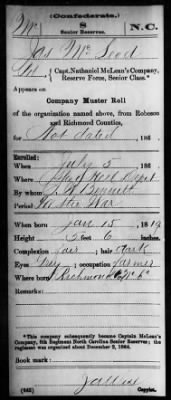 (Confederate.)
Mc 8 N.C.
Senior Reserves.
Jas Mc Leod
Capt. Nathaniel McLean's Company,
Reserve Force, Senior Class.*
Appears on
Company Muster Roll
of the organization named above, from Robeson
and Richmond Counties,
for Not dated, 186
Enlisted:
When July 5, 186
Where
By whom Bennett
Period for the War
When born Jan 15, 1819
Height 5 feet 6 inches.
Complexion fair; hair dark
Eyes Grey; occupation Farmer
Where born Richmond Co N.C.
Remarks:
*This company subsequently became Captain McLean's
Company, 8th Regiment North Carolina Senior Reserves; the
regiment was organized about December 2, 1864.
Book mark:
(642) Copyist.